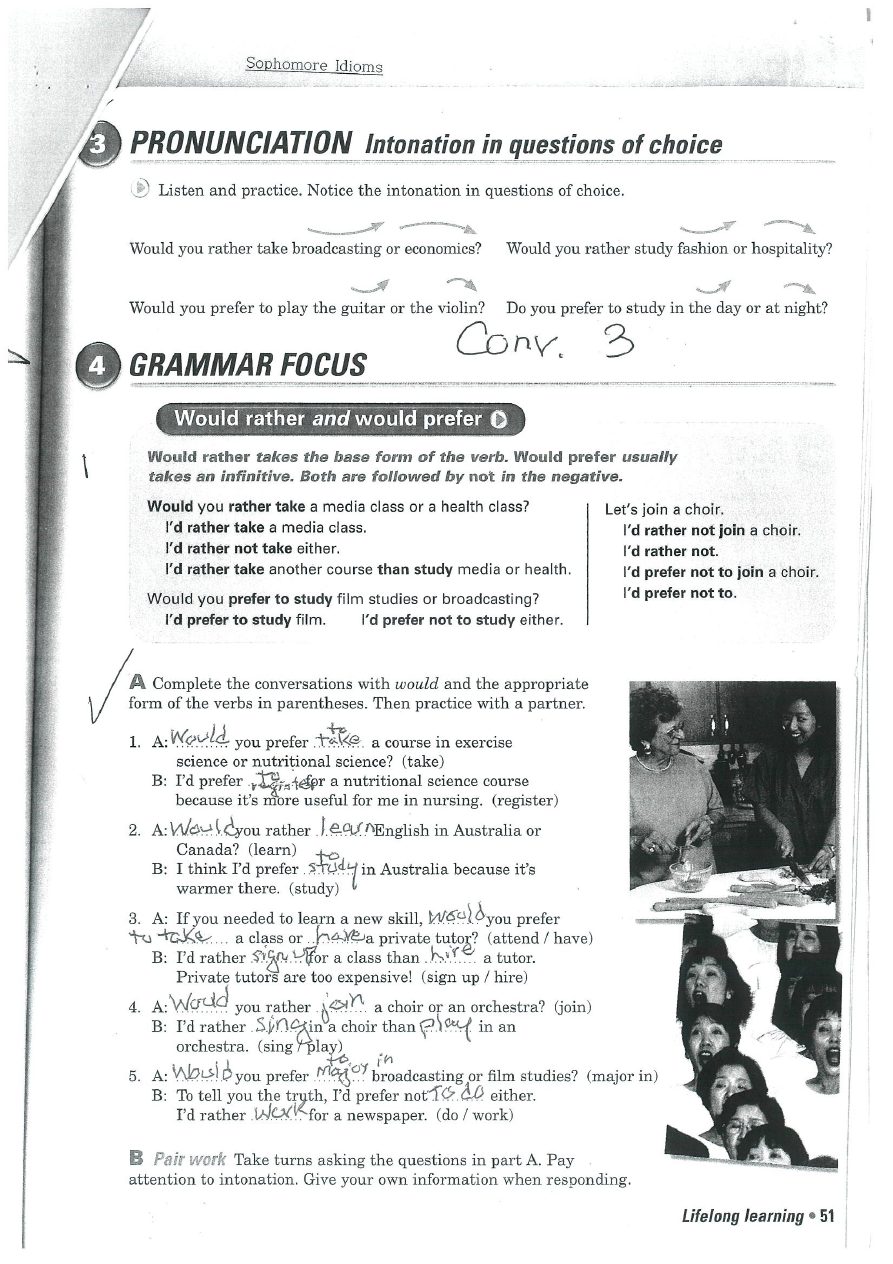 Sophomore Idioms
3 PRONUNCIATION Intonation in questions of choice
Listen and practice. Notice the intonation in questions of choice.
Would you rather take broadcasting or economics? Would you rather study fashion or hospitality?
Would you prefer to play the guitar or the violin? Do you prefer to study in the day or at night?
Conv. 3
4 GRAMMAR FOCUS
Would rather and would prefer
Would rather takes the base form of the verb. Would prefer usually
takes an infinitive. Both are followed by not in the negative.
Would you rather take a media class or a health class?
I'd rather take a media class.
I'd rather not take either.
I'd rather take another course than study media or health.
Would you prefer to study film studies or broadcasting?
I'd prefer to study film. I'd prefer not to study either.
Let's join a choir.
I'd rather not join a choir.
I'd rather not.
I'd prefer not to join a choir.
I'd prefer not to.
A Complete the conversations with would and the appropriate
form of the verbs in parentheses. Then practice with a partner.
1. A: Would you prefer to take a course in exercise
science or nutritional science? (take)
B: I'd prefer to register for a nutritional science course
because it's more useful for me in nursing. (register)
2. A: Would you rather learn English in Australia or
Canada? (learn)
B: I think I'd prefer to study in Australia because it's
warmer there. (study)
3. A: If you needed to learn a new skill, would you prefer
to take a class or have a private tutor? (attend / have)
B: I'd rather sign up for a class than hire a tutor.
Private tutors are too expensive! (sign up / hire)
4. A: Would you rather join a choir or an orchestra? (join)
B: I'd rather sing in a choir than play in an
orchestra. (sing / play)
5. A: Would you prefer to major in broadcasting or film studies? (major in)
B: To tell you the truth, I'd prefer not to do either.
I'd rather work for a newspaper. (do / work)
B Pair work Take turns asking the questions in part A. Pay
attention to intonation. Give your own information when responding.
Lifelong learning • 51